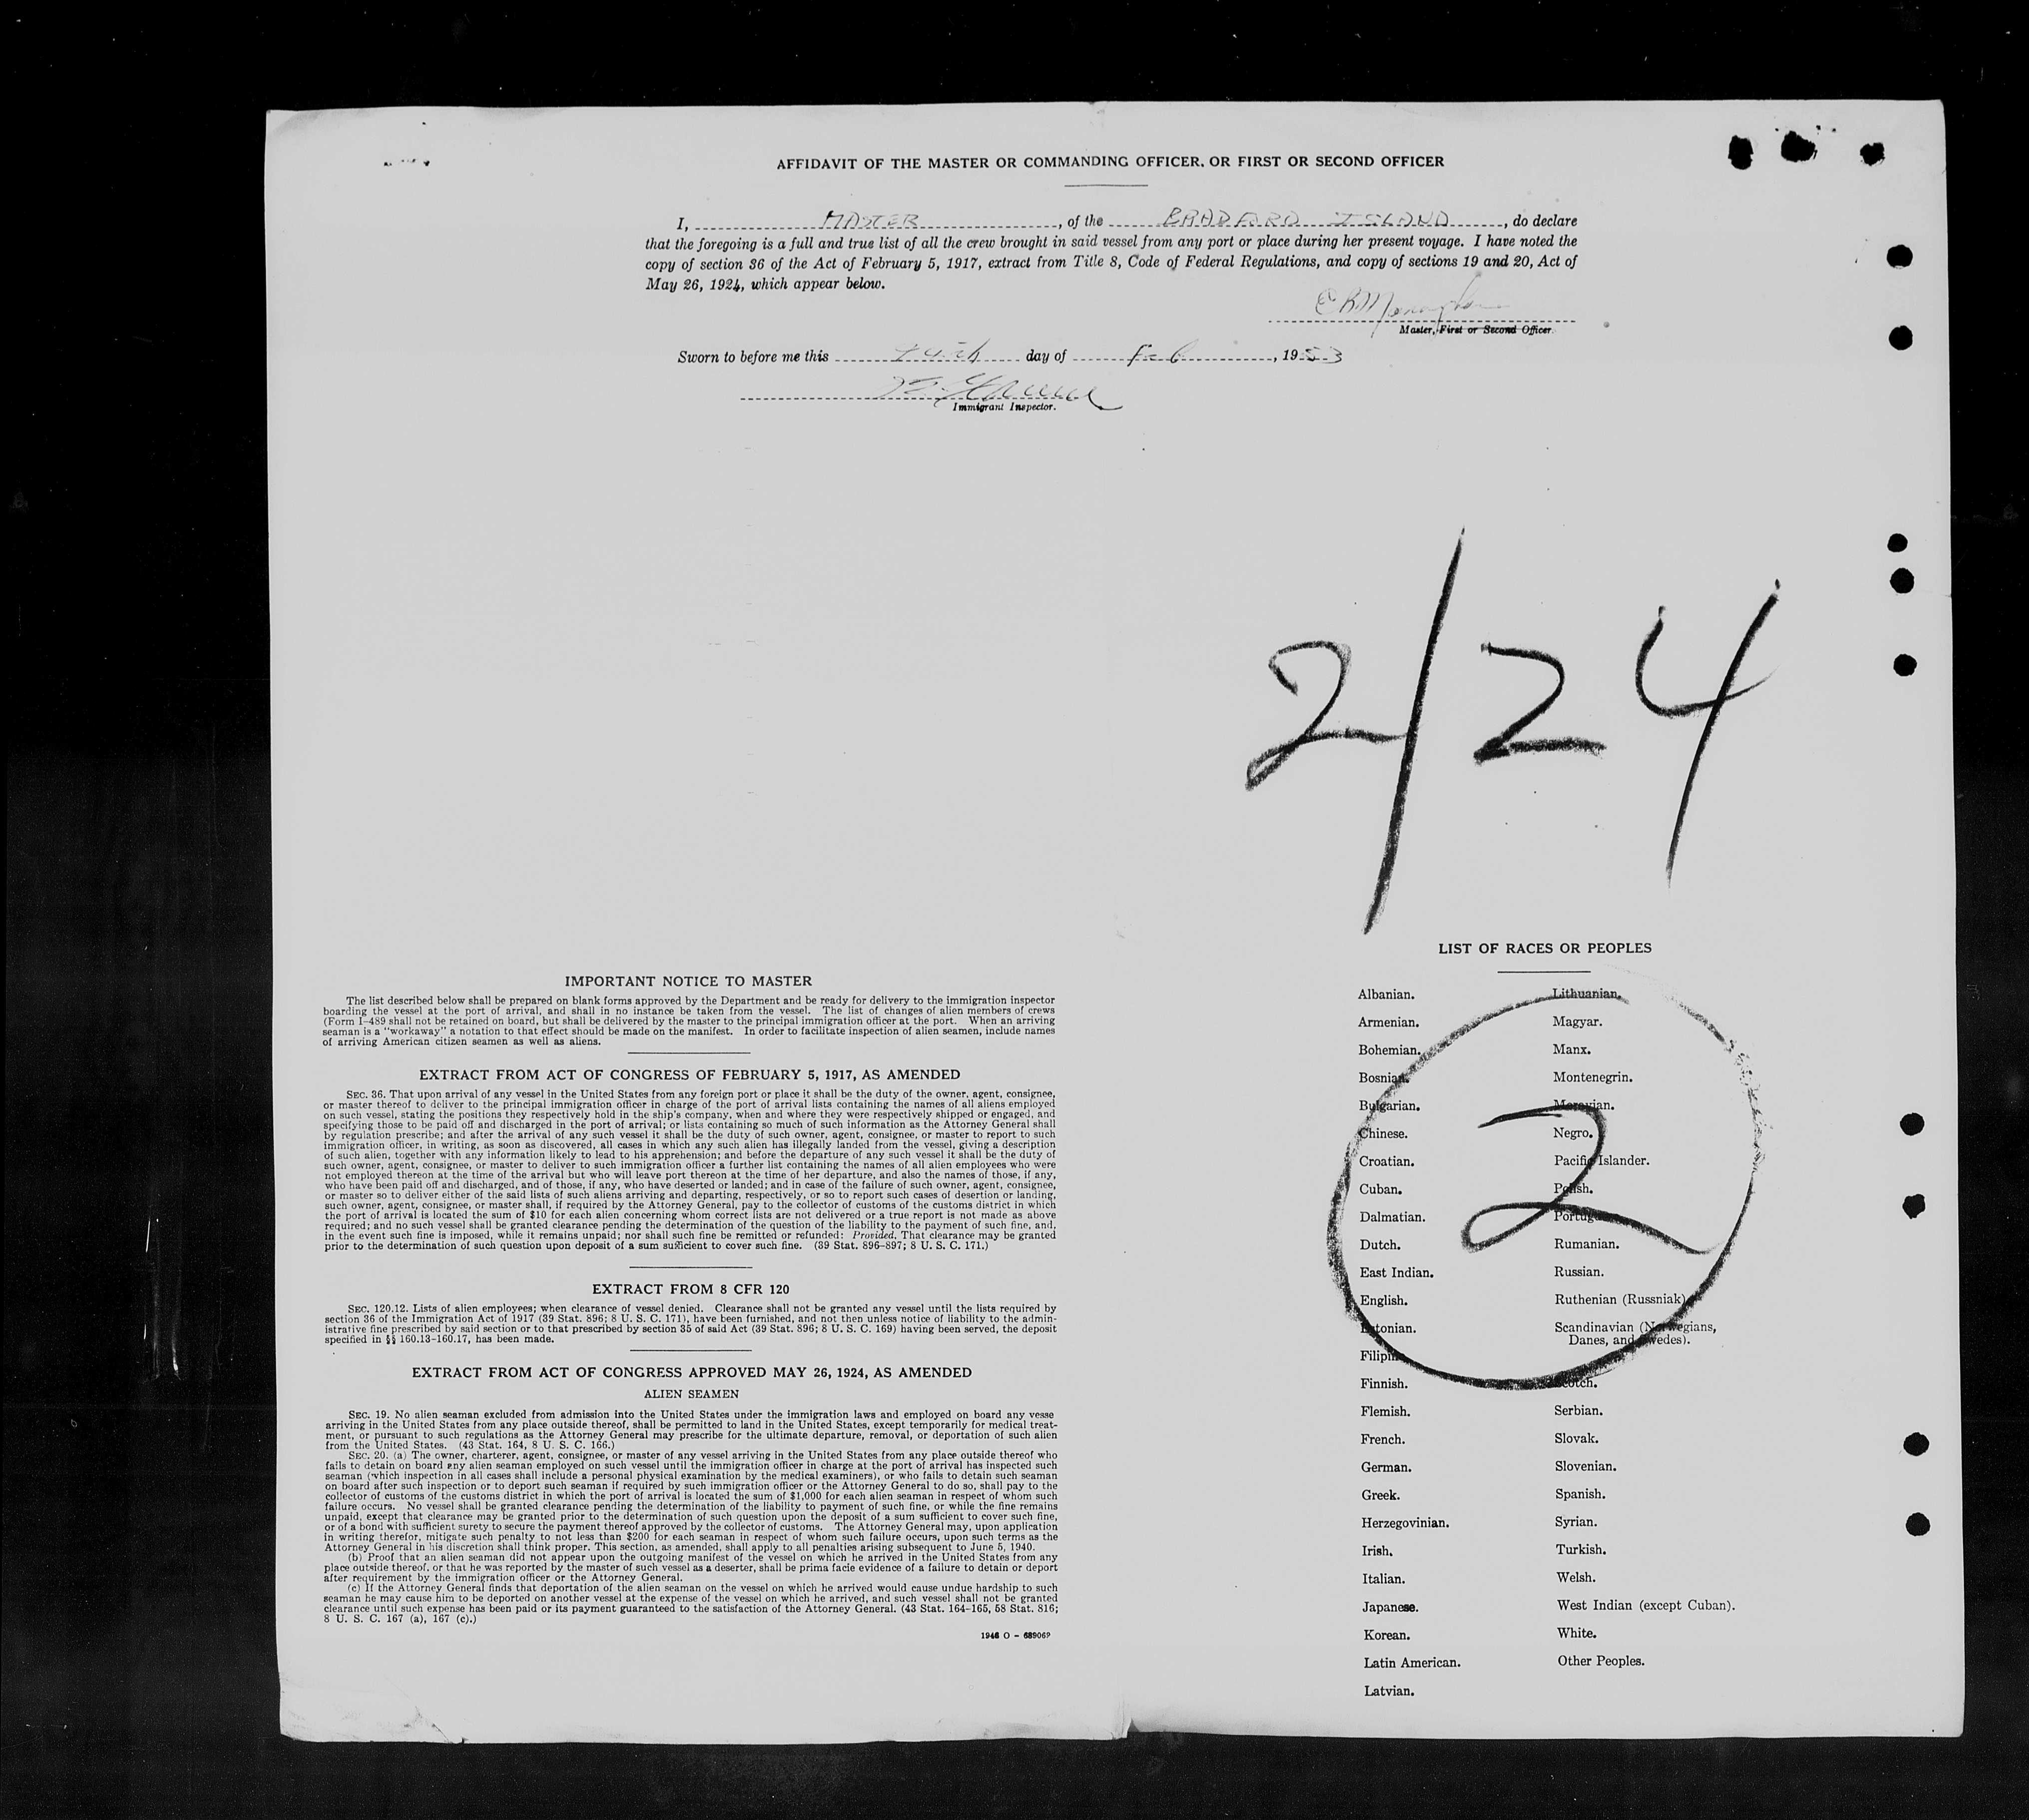 AFFIDAVIT OF THE MASTER OR COMMANDING OFFICER, OR FIRST OR SECOND OFFICER
I, MASTER, of the BRADFORD ISLAND, do declare
that the foregoing is a full and true list of all the crew brought in said vessel from any port or place during her present voyage. I have noted the
copy of section 36 of the Act of February 5, 1917, extract from Title 8, Code of Federal Regulations, and copy of sections 19 and 20, Act of
May 26, 1924, which appear below.
Master, First or Second Officer.
Sworn to before me this day of Feb, 1953
Immigrant Inspector.
2/24
IMPORTANT NOTICE TO MASTER
The list described below shall be prepared on blank forms approved by the Department and be ready for delivery to the immigration inspector
boarding the vessel at the port of arrival, and shall in no instance be taken from the vessel. The list of changes of alien members of crews
(Form I-489 shall not be retained on board, but shall be delivered by the master to the principal immigration officer at the port. When an arriving
seaman is a "workaway" a notation to that effect should be made on the manifest. In order to facilitate inspection of alien seamen, include names
of arriving American citizen seamen as well as aliens.
EXTRACT FROM ACT OF CONGRESS OF FEBRUARY 5, 1917, AS AMENDED
SEC. 36. That upon arrival of any vessel in the United States from any foreign port or place it shall be the duty of the owner, agent, consignee,
or master thereof to deliver to the principal immigration officer in charge of the port of arrival lists containing the names of all aliens employed
on such vessel, stating the positions they respectively hold in the ship's company, when and where they were respectively shipped or engaged, and
specifying those to be paid off and discharged in the port of arrival; or lists containing so much of such information as the Attorney General shall
by regulation prescribe; and after the arrival of any such vessel it shall be the duty of such owner, agent, consignee, or master to report to such
immigration officer, in writing, as soon as discovered, all cases in which any such alien has illegally landed from the vessel, giving a description
of such alien, together with any information likely to lead to his apprehension; and before the departure of any such vessel it shall be the duty of
such owner, agent, consignee, or master to deliver to such immigration officer a further list containing the names of all alien employees who were
not employed thereon at the time of the arrival but who will leave port thereon at the time of her departure, and also the names of those, if any,
who have been paid off and discharged, and of those, if any, who have deserted or landed; and in case of the failure of such owner, agent, consignee,
or master so to deliver either of the said lists of such aliens arriving and departing, respectively, or so to report such cases of desertion or landing,
such owner, agent, consignee, or master shall, if required by the Attorney General, pay to the collector of customs of the customs district in which
the port of arrival is located the sum of $10 for each alien concerning whom correct lists are not delivered or a true report is not made as above
required; and no such vessel shall be granted clearance pending the determination of the question of the liability to the payment of such fine, and,
in the event such fine is imposed, while it remains unpaid; nor shall such fine be remitted or refunded: Provided, That clearance may be granted
prior to the determination of such question upon deposit of a sum sufficient to cover such fine. (39 Stat. 896-897; 8 U. S. C. 171.)
EXTRACT FROM 8 CFR 120
SEC. 120.12. Lists of alien employees; when clearance of vessel denied. Clearance shall not be granted any vessel until the lists required by
section 36 of the Immigration Act of 1917 (39 Stat. 896; 8 U. S. C. 171), have been furnished, and not then unless notice of liability to the admin-
istrative fine prescribed by said section or to that prescribed by section 35 of said Act (39 Stat. 896; 8 U. S. C. 169) having been served, the deposit
specified in §§ 160.13-160.17, has been made.
EXTRACT FROM ACT OF CONGRESS APPROVED MAY 26, 1924, AS AMENDED
ALIEN SEAMEN
SEC. 19. No alien seaman excluded from admission into the United States under the immigration laws and employed on board any vesse
arriving in the United States from any place outside thereof, shall be permitted to land in the United States, except temporarily for medical treat-
ment, or pursuant to such regulations as the Attorney General may prescribe for the ultimate departure, removal, or deportation of such alien
from the United States. (43 Stat. 164, 8 U. S. C. 166.)
SEC. 20. (a) The owner, charterer, agent, consignee, or master of any vessel arriving in the United States from any place outside thereof who
fails to detain on board any alien seaman employed on such vessel until the immigration officer in charge at the port of arrival has inspected such
seaman (which inspection in all cases shall include a personal physical examination by the medical examiners), or who fails to detain such seaman
on board after such inspection or to deport such seaman if required by such immigration officer or the Attorney General to do so, shall pay to the
collector of customs of the customs district in which the port of arrival is located the sum of $1,000 for each alien seaman in respect of whom such
failure occurs. No vessel shall be granted clearance pending the determination of the liability to payment of such fine, or while the fine remains
unpaid, except that clearance may be granted prior to the determination of such question upon the deposit of a sum sufficient to cover such fine,
or of a bond with sufficient surety to secure the payment thereof approved by the collector of customs. The Attorney General may, upon application
in writing therefor, mitigate such penalty to not less than $200 for each seaman in respect of whom such failure occurs, upon such terms as the
Attorney General in his discretion shall think proper. This section, as amended, shall apply to all penalties arising subsequent to June 5, 1940.
(b) Proof that an alien seaman did not appear upon the outgoing manifest of the vessel on which he arrived in the United States from any
place outside thereof, or that he was reported by the master of such vessel as a deserter, shall be prima facie evidence of a failure to detain or deport
after requirement by the immigration officer or the Attorney General.
(c) If the Attorney General finds that deportation of the alien seaman on the vessel on which he arrived would cause undue hardship to such
seaman he may cause him to be deported on another vessel at the expense of the vessel on which he arrived, and such vessel shall not be granted
clearance until such expense has been paid or its payment guaranteed to the satisfaction of the Attorney General. (43 Stat. 164-165, 58 Stat. 816;
8 U. S. C. 167 (a), 167 (c).)
LIST OF RACES OR PEOPLES
Albanian.
Armenian.
Bohemian.
Bosnian.
Bulgarian.
Chinese.
Croatian.
Cuban.
Dalmatian.
Dutch.
East Indian.
English.
Estonian.
Filipino.
Finnish.
Flemish.
French.
German.
Greek.
Herzegovinian.
Irish.
Italian.
Japanese.
Korean.
Latin American.
Latvian.
Lithuanian.
Magyar.
Manx.
Montenegrin.
Moravian.
Negro.
Pacific Islander.
Polish.
Portuguese.
Rumanian.
Russian.
Ruthenian (Russniak).
Scandinavian (Norwegians,
Danes, and Swedes).
Scotch.
Serbian.
Slovak.
Slovenian.
Spanish.
Syrian.
Turkish.
Welsh.
West Indian (except Cuban).
White.
Other Peoples.
2